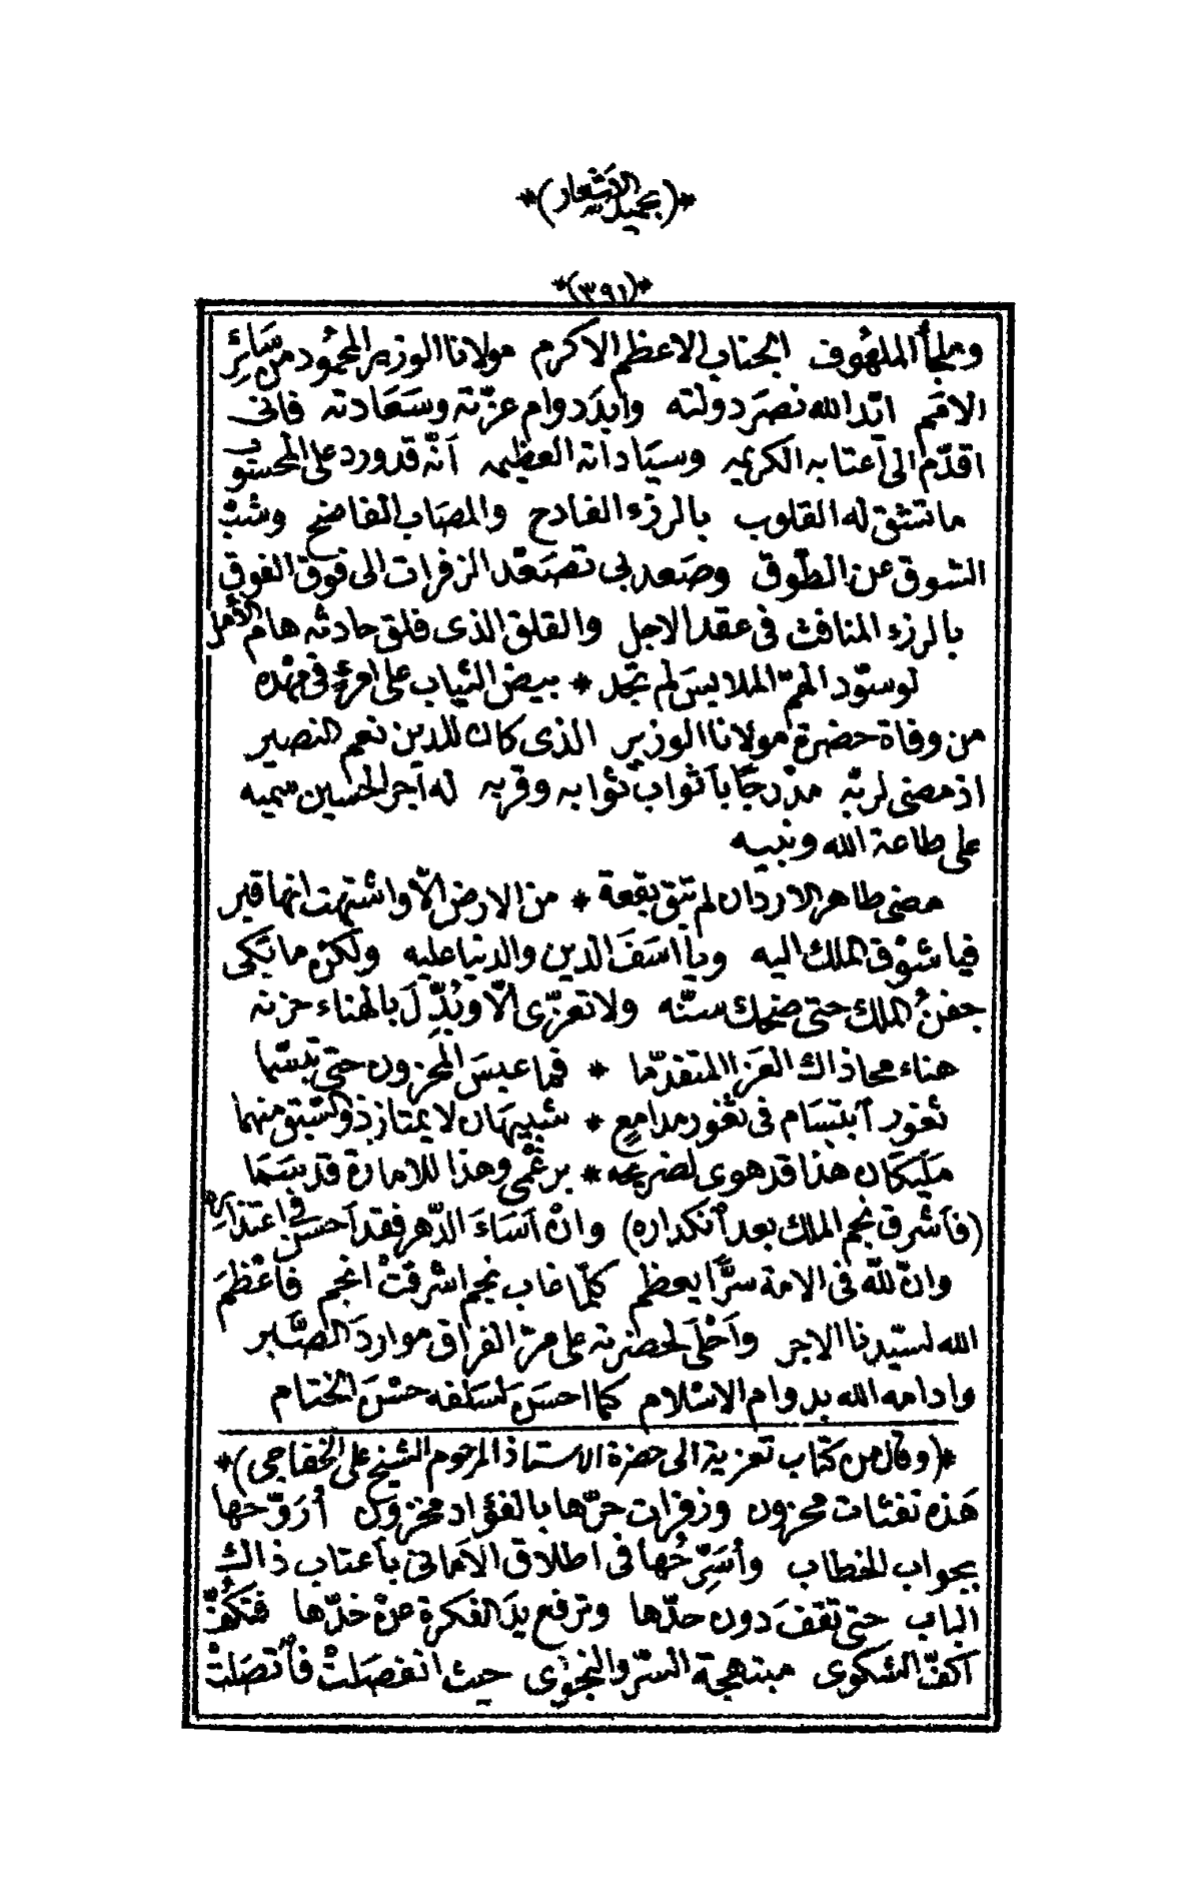 *(بجميل الاشعار)*
*(٣٩١)*
وملجأ الملهُوف الجناب الاعظم الاكرم مولانا الوزير المحمُود من سَائِر
الامَم ايّد الله نصَر دولته وأيدَ دوام عزّته وسَعَادته فانى
اقدّم الى أعتابه الكريمه وسيَاداته العظيمه أنّه قد ورد على المحسوب
ما تنشق له القلوب بالرزء الفادح والمصَاب الفاضح وشبّ
الشوق عن الطّوق وصَعد بى تصَعّد الزفرات الى فوق الفوق
بالرزء النافث فى عقد الاجل والقلق الذى فلق حادثه هام الأمل
لو سوّد الهمّ الملابسَ لم تجد * بيض الثياب على امرءٍ فى مهْده
من وفاة حضرة مولانا الوزير الذى كان للدين نعم النصير
اذ مضى لربّه مدْرجًا بأثواب ثوابه وقربه له أجر الحسين سميه
على طاعة الله ونبيه
مضى طاهر الاردان لم تبق بقعة * من الارض الّا واشتهت انها قبر
فيا شوْق الملك اليه ويا اسَفَ الدين والدنيا عليه ولكنْ ما بَكى
جفنُ الملك حتى ضحك سنّه ولا تعزّى الّا وبُدِّلَ بالهناء حزنه
هناء محا ذاك العَزا المتقدّما * فما عبسَ المحزون حتى تبسّما
ثغور ٱبتسَام فى ثغور مدامعٍ * شبيهَان لا يمتاز ذو السّبق منهما
مَليكَان هذا قد هوى لضريحه * برغْمى وهذا للامارة قد سَمَا
(فأشرق نجم الملك بعد ٱنكداره) وانْ أسَاءَ الدّهر فقد أحسَن فى اعتذاره
وانّ لله فى الامة سرًّا يعظم كلّما غاب نجم اشرقتْ انجم فأعْظمَ
الله لسَيّدنا الاجر وأحْلَى لحضرته على مرّ الفراق مواردَ الصَّبر
وادامه الله بدوام الاسْلام كما احسَن لسَلفه حسْنَ الختام
*(وقال من كتاب تعزية الى حضرة الاستاذ المرحوم الشيخ على الخفاجى)*
هَذه نفثات محزون وزفرات حرّها بالفؤاد مخزون أرَوّحُها
بجواب الخطاب وأسَرِّحُها فى اطلاق الأمانى بأعتاب ذاك
الباب حتى تقفَ دون حدّها وترفع يدَ الفكرة عن خدّها فتكُفَّ
أكفّ الشكوى مبتهجة السّر والنجوَى حيث انفصَلتْ فٱتصَلتْ